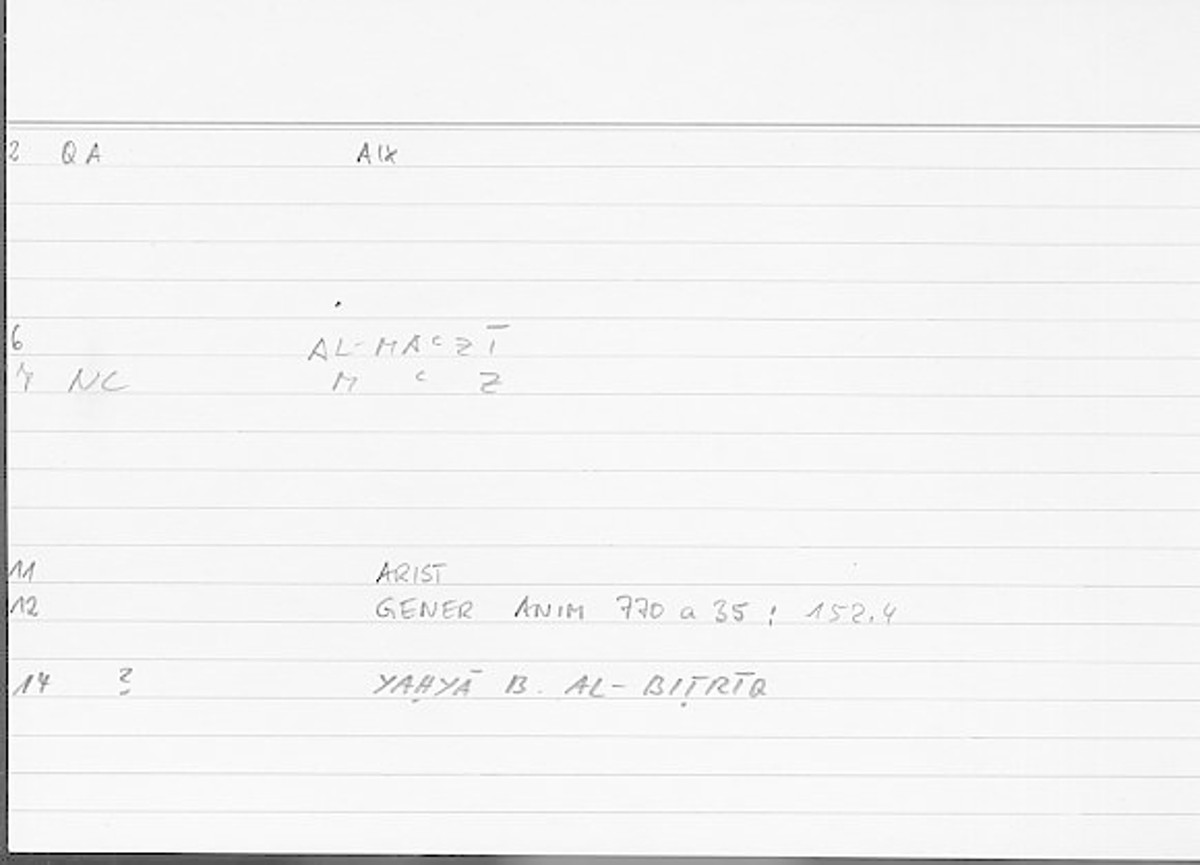 2 QA AIX
6 AL-MAʿZĪ
7 NC M ʿ Z
11 ARIST
12 GENER ANIM 770 a 35 ; 152.4
14 ? YAḤYĀ B. AL-BIṬRĪQ